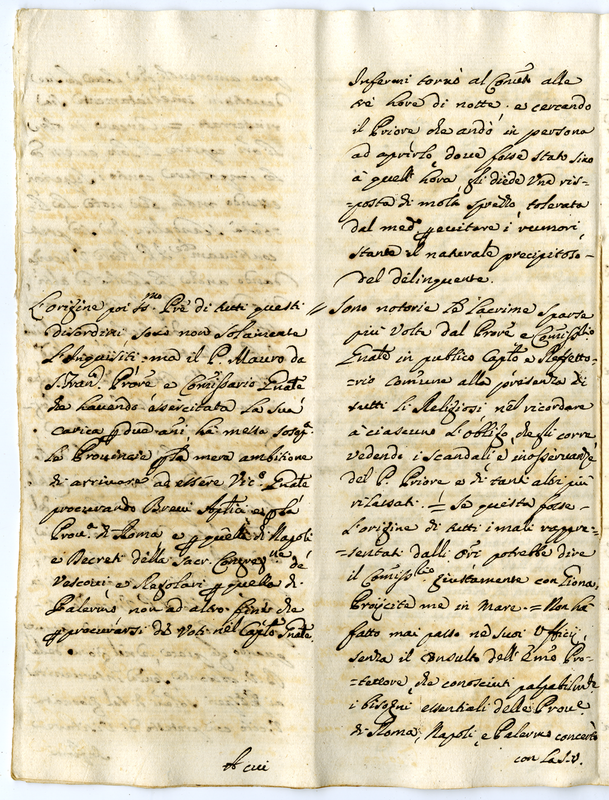 Infermi tornò al Conv.to alle
tre hore di notte. e cercando
il Priore che andò in persona
ad aprirlo, dove fosse stato sino
a quell' hora, gli diede una ris-
=posta di molto sprezzo, tolerata
dal med.o p evitare i rumori,
stante il naturale precipitoso
del delinquente.
L'origine poi R.mo Pre di tutti questi
disordini sono non solamente
L'Inquisiti, ma il P. Mauro da
S. Fran.o Priore e Comissario Gnale
che havendo essercitata la sua
carica p due ani, ha messa sosop.a
la Provincia p la mera ambitione
di arrivare ad essere Vic.o Gnale
procurando Brevi Aplici e p la
Prov.a di Roma e p quelle di Napoli
e Decreti della Sacr. Congreg.ne de
Vescovi e Regolari p quella di
Palermo non ad altro fine che
p procurarsi de Voti nel Caplo Gnale.
A cui
// Sono notorie le Lacrime sparse
più volte dal Priore e Comiss.rio
Gnale in publico Caplo e Refetto-
=rio comune alla presenza di
tutti li Religiosi nel ricordare
a ciascuno l'obligo, che gli corre,
vedendo i scandali e inosservanze
del P. Priore e di tanti altri più
rilassati. = Se questa fosse
l'origine di tutti i mali rappre-
=sentati dall' Ori potrebbe dire
il Comiss.rio giustamente con Giona,
Projcite me in Mare. = Non ha
fatto mai passo ne suoi Ufficij
senza il consulto dell' Emo Pro-
=tettore, che conosciuti palpabilm.te
i bisogni essentiali delle Prov.e
di Roma, Napoli, e Palermo concertò
con La S.V.